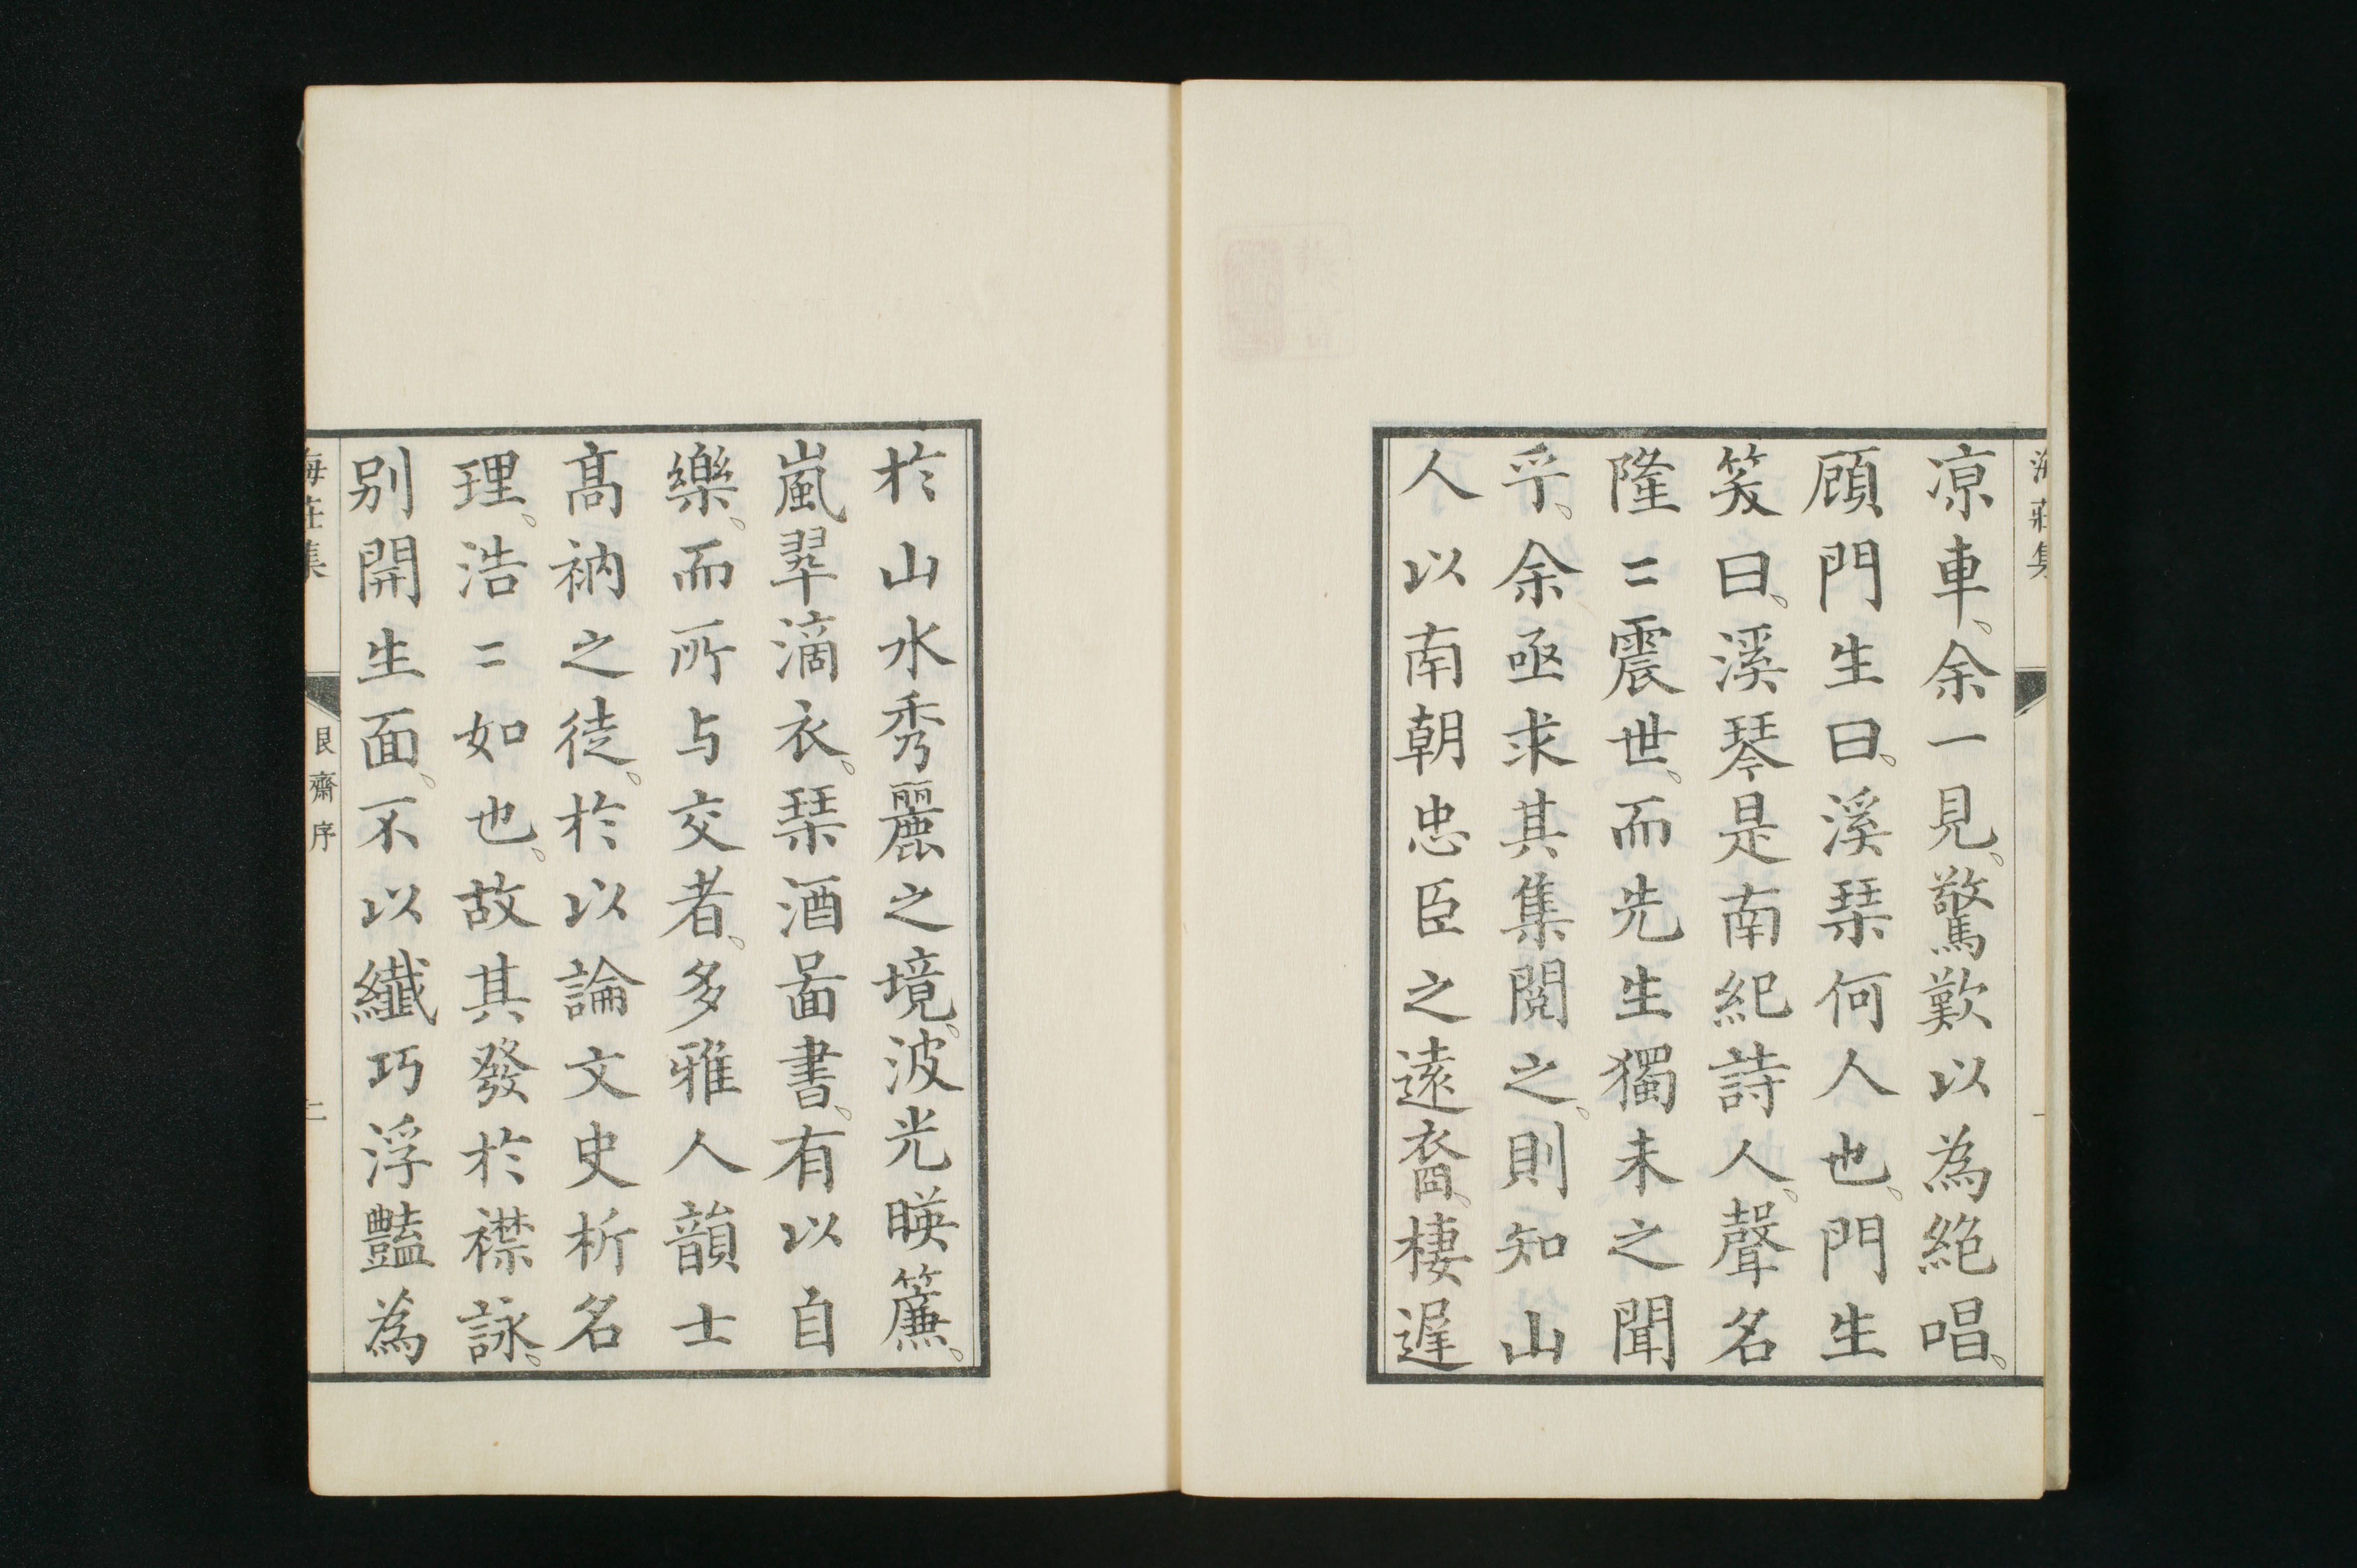 凉車。余一見。驚歎以為絶唱。
顧門生曰。溪琹何人也。門生
笑曰。溪琴是南紀詩人。聲名
隆〻震世。而先生獨未之聞
乎。余亟求其集閲之。則知山
人以南朝忠臣之遠裔。棲遲
於山水秀麗之境。波光暎簾。
嵐翠滴衣。琹酒啚書。有以自
樂。而所与交者。多雅人韻士
髙衲之徒。於以論文史析名
理。浩〻如也。故其發於襟詠。
别開生面。不以纎巧浮豔為
海莊集
艮齋序
二